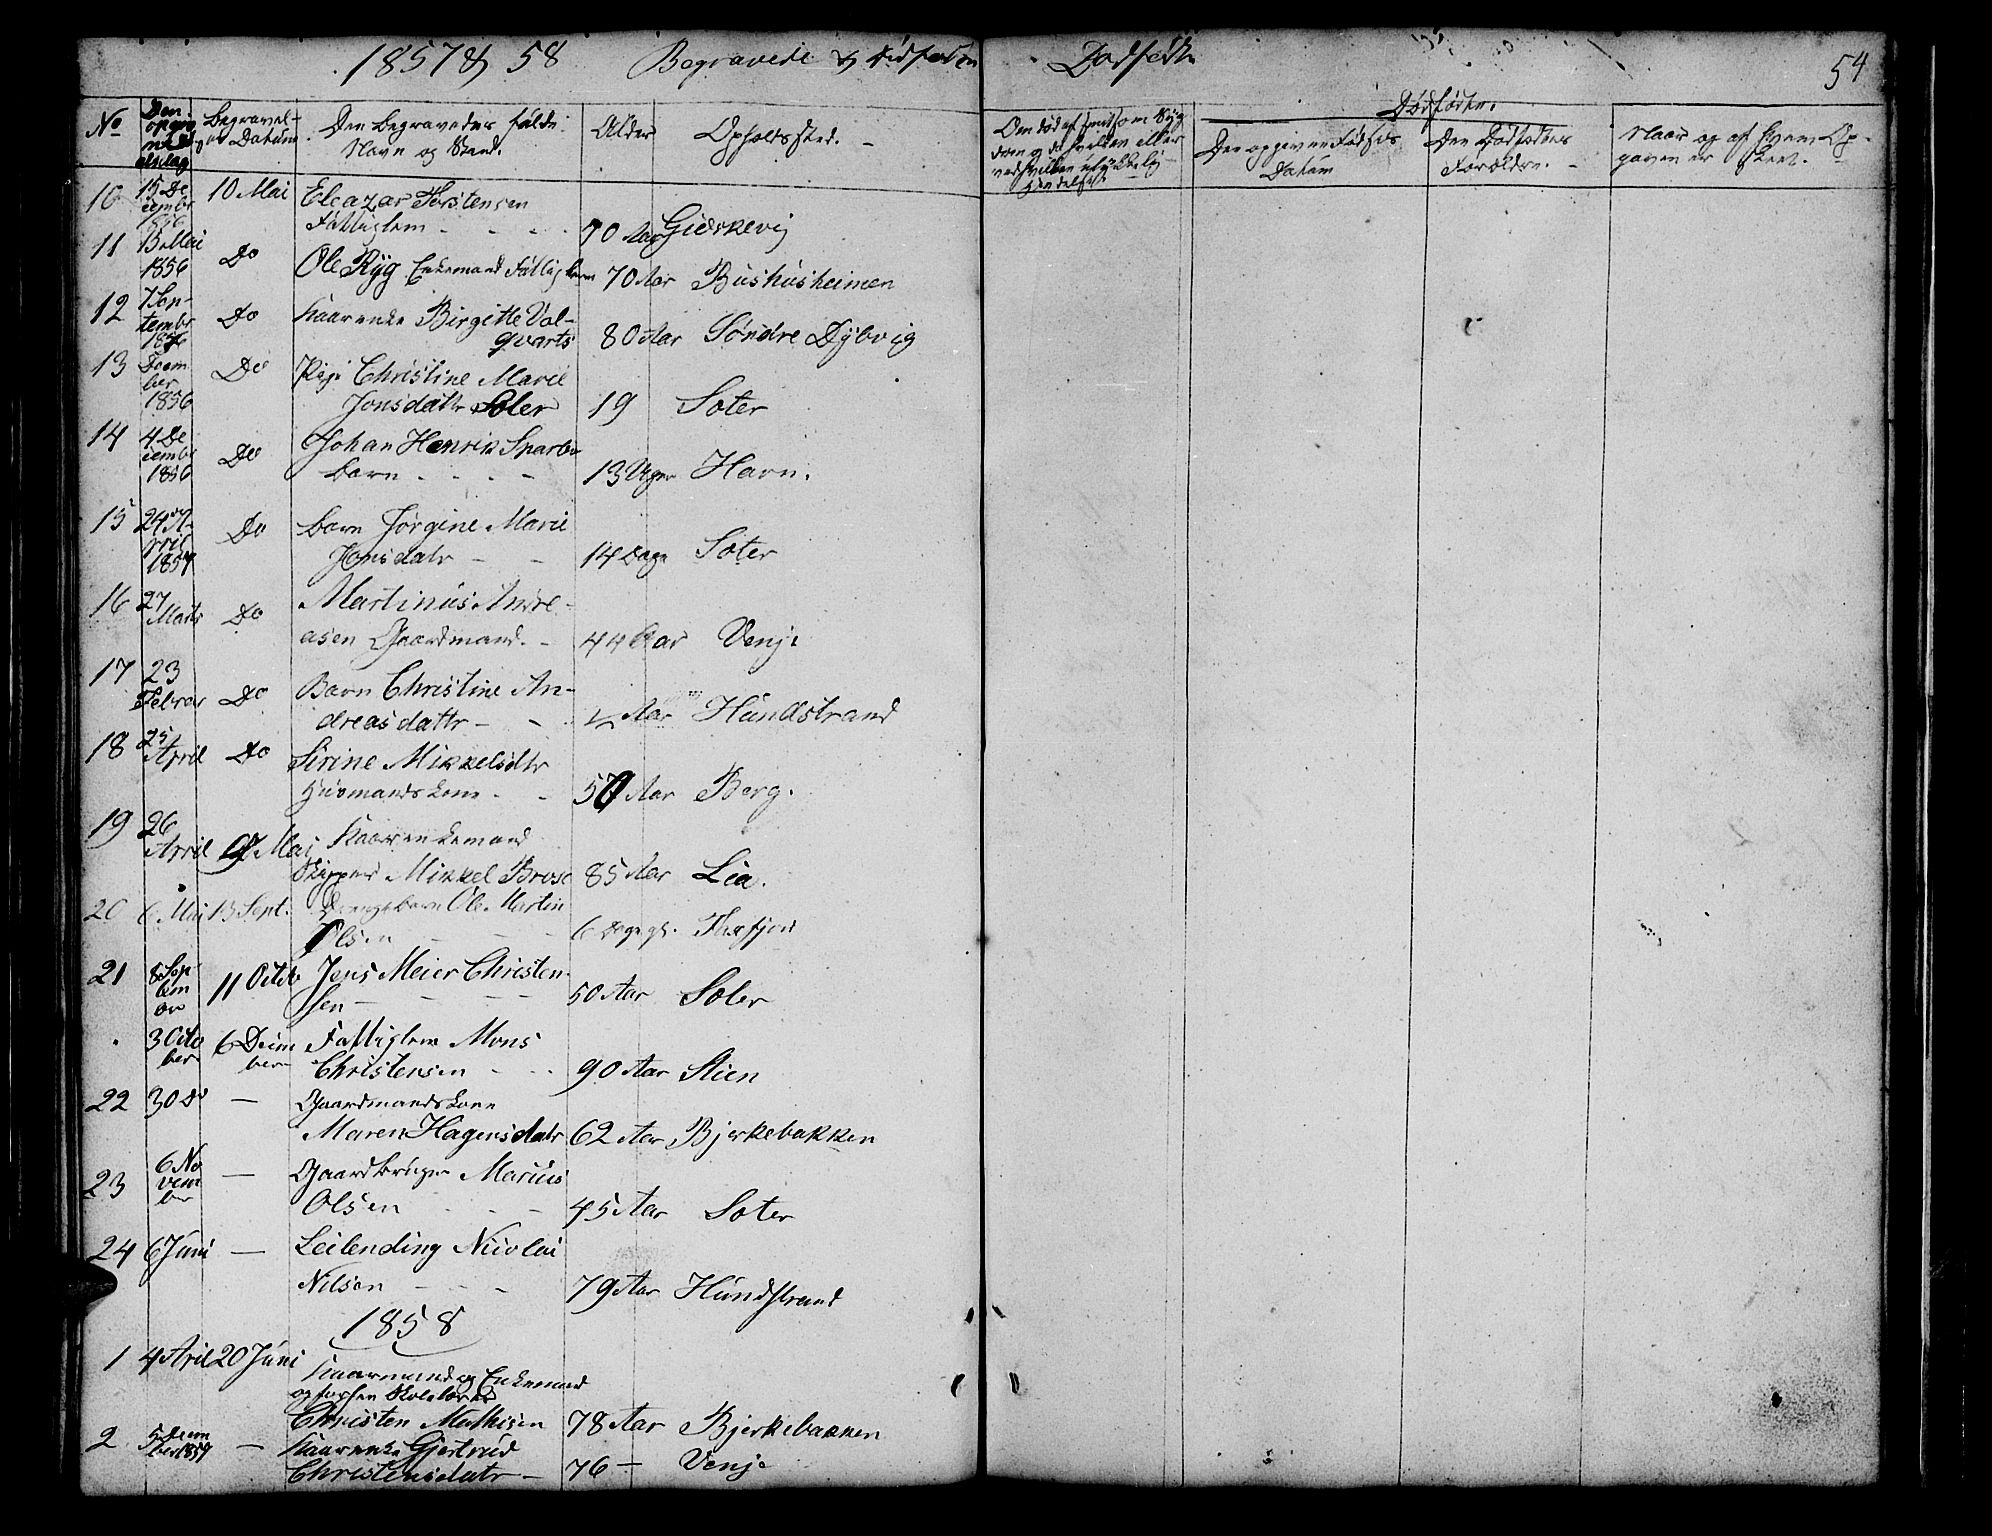 1857 & 58 Begravede & Dødfødte
Dødfødte
54
No
Begravel-
Datum
Den Begravedes fulde
Navn og Stand.
Alder
Opholdssted.
Om død af smitsom Syg
dom og da hvilken eller
ved hvilken ulykkelig
Hændelse
Dødfødte.
Den opgivne Fødsels
Datum
Den Dødfødtes
Forældre.
Naar og af hvem Op-
gaven er skeet.
10 15 De
cembr
1856 10 Mai Eleazar Torstensen
Fattiglem 70 Aar Gidskevig
11 Mai
1856 Do Ole Ryg Enkemand Fattiglem 70 Aar Bushusheimen
12 7 Sep-
tembr
1856 Do Kaarenke Birgitte Vol-
qvarts 80 Aar Søndre Dybvig
13 Decem
ber
1856 Do Pige Christine Marie
Jonsdatr Soter 19 Soter
14 4 De
cembr
1856 Do Johan Henrik Sparbo
barn 13 Uger Havn.
15 24 A-
pril
1857 Do barn Jørgine Marie
Jonsdatr 14 Dage Soter
16 27
Marts Do Martinus Andre-
asen Gaardmand. 44 Aar Venje
17 23
Februar Do Barn Christine An-
dreasdattr ½ Aar Hundstrand
18 25
April Do Sirine Mikkelsdtr
Husmandskone 57 Aar Berg.
19 26
April 9 Mai Kaarenkemand
Skipper Mikkel Brose 85 Aar Lia.
20 6 Mai 13 Sept. Drengebarn Ole Martin
Olsen 6 Dage gl. Flasfjord
21 8 Sep
tem
ber 11 Octob Jens Meier Christen-
sen 50 Aar Soter
3 Octo
ber 6 Decem
ber Fattiglem Mons
Christensen 90 Aar Stien
22 30 Do — Gaardmandskone
Maren Hagensdatr 62 Aar Bjerkebakken
23 6 No
vem
ber — Gaardbruger Marius
Olsen 45 Aar Soter
24 6 Juni — Leilending Nicolai
Nilsen 79 Aar Hundstrand
1858
1 4 April 20 Juni Kaarmand og Enkemand
og forhen Skolelærer
Christen Mathisen 78 Aar Bjerkebakken
2 5 Decem
ber 1857 — Kaarenke Gjertrud
Christensdatr 76 — Venje